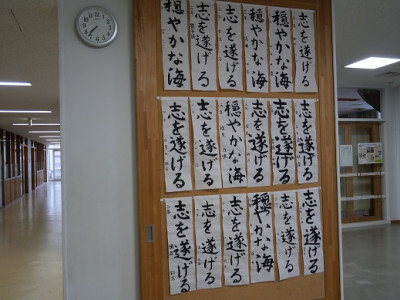 志を遂げる
穏やかな海
穏やかな海
志を遂げる
志を遂げる
穏やかな海
志を遂げる
志を遂げる
志を遂げる
穏やかな海
志を遂げる
志を遂げる
志を遂げる
志を遂げる
穏やかな海
志を遂げる
志を遂げる
志を遂げる